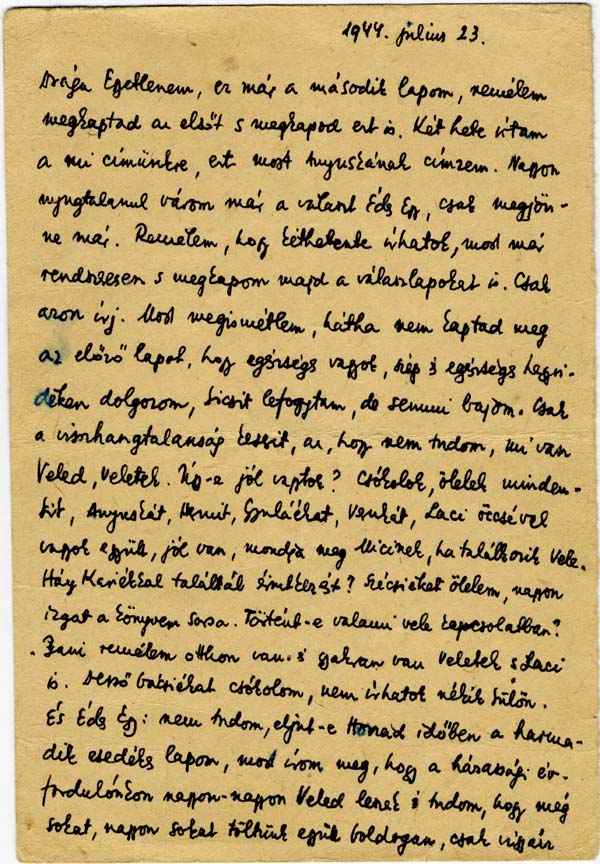 1944. július 23.
Drága Egyetlenem, ez már a második lapom, remélem
megkaptad az elsőt s megkapod ezt is. Két hete írtam
a mi címünkre, ezt most Anyuskának címzem. Nagyon
nyugtalanul várom már a választ Édes Egy, csak megjön-
ne már. Remélem, hogy kéthetente írhatok, most már
rendszeresen s megkapom majd a válaszlapokat is. Csak
azon írj. Most megismétlem, hátha nem kaptad meg
az előző lapot, hogy egészséges vagyok, szép s egészséges hegyvi-
déken dolgozom, kicsit lefogytam, de semmi bajom. Csak
a visszhangtalanság keserít, az, hogy nem tudom, mi van
Veled, Veletek. Úgy-e jól vagytok? Csókolok, ölelek minden-
kit, Anyuskát, Gyuláékat, Laci öccsével
vagyok együtt, jól van, mondja meg Micinek, ha találkozik Vele.
Háy Kariékkal találtál Szécsiéket ölelem, nagyon
izgat a könyvem sorsa. Történt-e valami vele kapcsolatban?
remélem otthon van s gyakran van Veletek s Laci
is. Dezső bácsiékat csókolom, nem írhatok nékik külön.
És Édes Egy: nem tudom, eljut-e Hozzád időben a harma-
dik esedékes lapom, most írom meg, hogy a házassági év-
fordulónkon nagyon-nagyon Veled leszek s tudom, hogy még
sokat, nagyon sokat töltünk együtt boldogan, csak